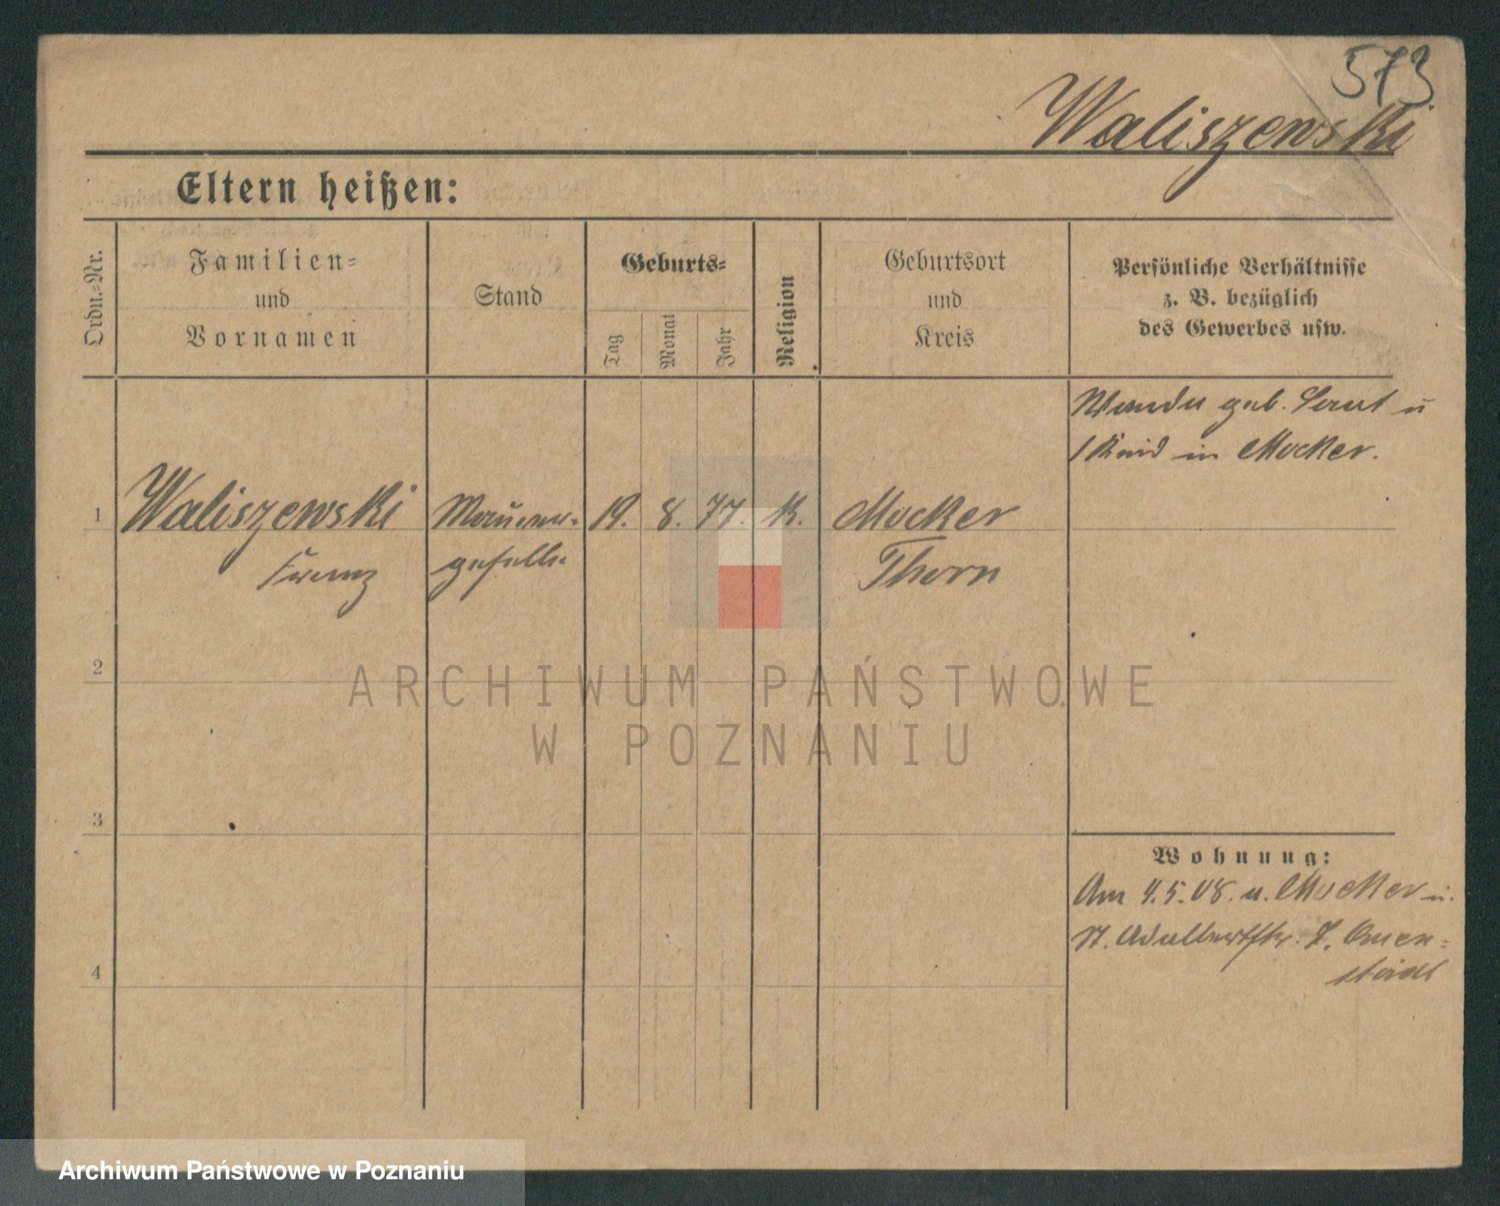 573
Waliszewski
Eltern heißen:
Ordn.-Nr.
Familien-
und
Vornamen
Stand
Geburts-
Tag
Monat
Jahr
Religion
Geburtsort
und
Kreis
Persönliche Verhältnisse
z. B. bezüglich
des Gewerbes usw.
Wanda geb. u
1 Kind in Mocker.
1 Waliszewski Maurer- 19. 8. 77. K. Mocker
Franz geselle Thorn
2
ARCHIWUM PAŃSTWOWE
W POZNANIU
3
Wohnung:
Am 4.5.08. u. Mocker n.
St. Adalbertstr. 7.
4
Archiwum Państwowe w Poznaniu